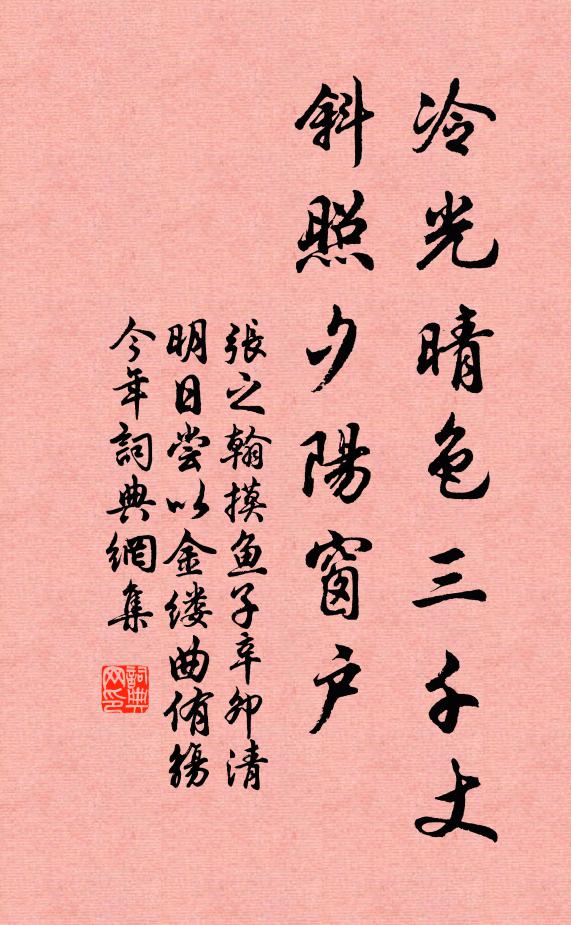 冷光晴色三千丈
斜照夕陽窗户
張之翰摸鱼子辛卯清
明日尝以金缕曲侑觞
今年詞典網集
詞典网印